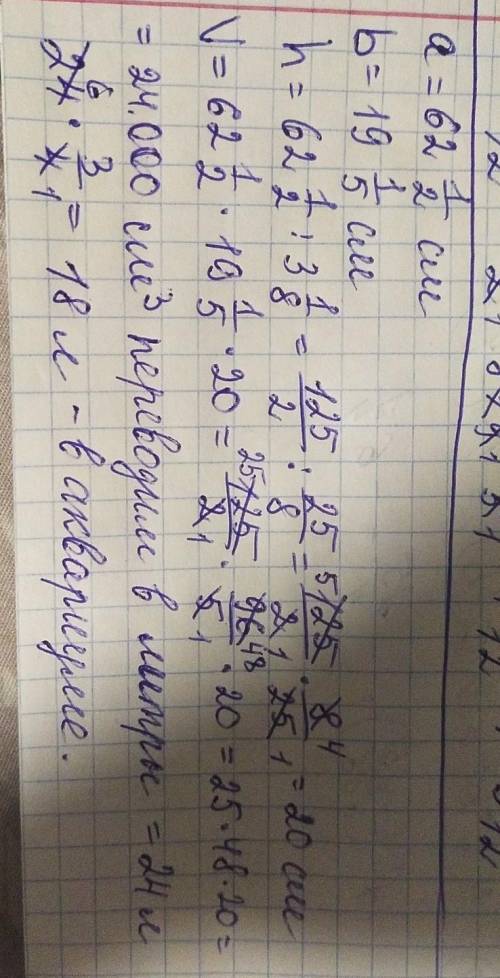 a = 62 1/2 см
b = 19 1/5 см
h = 62 1/2 : 3 1/8 = 125/2 : 25/8 = 125/2 · 8/25 = 20 см
V = 62 1/2 · 19 1/5 · 20 = 125/2 · 96/5 · 20 = 25 · 48 · 20 =
= 24.000 см³ переводим в литры = 24 л
24 · 3/4 = 18 л - в аквариуме.